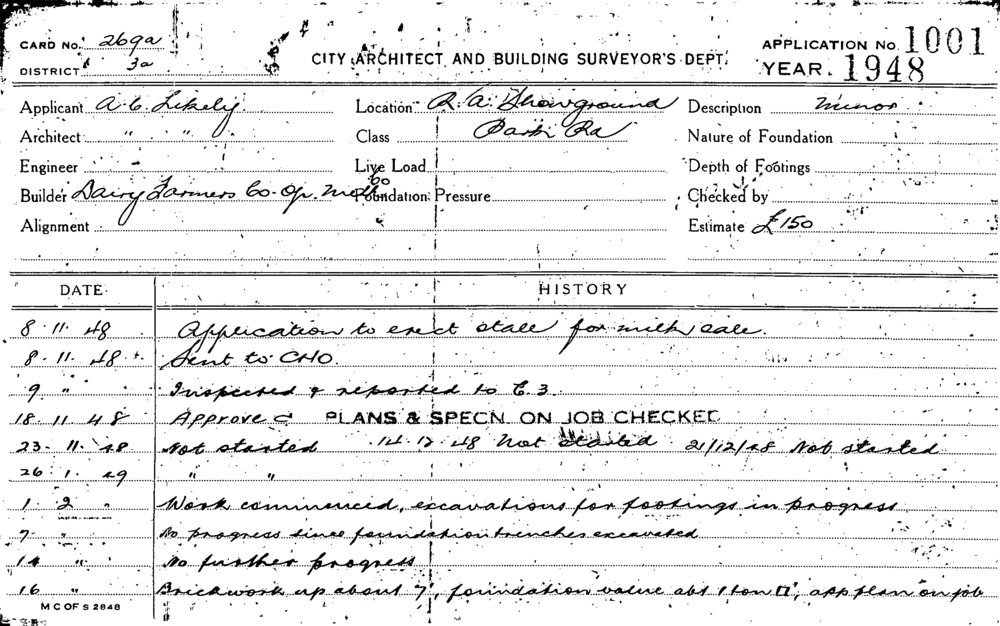 CARD No. 269a
DISTRICT 3a
CITY ARCHITECT AND BUILDING SURVEYOR'S DEPT.
APPLICATION No. 1001
YEAR. 1948
Applicant A. C. Likely Location R. A. Showground Description minor
Architect " " Class Park Rd Nature of Foundation
Engineer Live Load Depth of Footings
Builder Dairy Farmers Co-Op. Milk Co Foundation Pressure Checked by
Alignment Estimate £150
DATE HISTORY
8.11.48 Application to erect stall for milk sale.
8.11.48 Sent to CHO.
9 " Inspected & reported to C.3.
18.11.48 Approved PLANS & SPECN. ON JOB CHECKED
23.11.48 Not started 14.12.48 Not started 21/12/48 Not started
26.1.49 " "
1.2 " Work commenced, excavations for footings in progress
7 " No progress since foundation trenches excavated
14 " No further progress
16 " Brickwork up about 7', foundation value abt 1 ton □', app plan on job
M C OF S 2848